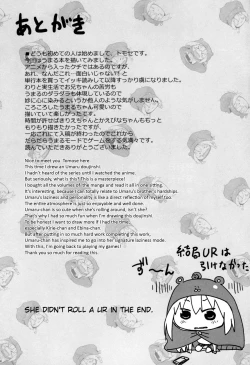 あとがき
どうも初めての人は始めまして、トモセです。
今回はうまる本を描いてみました。
アニメから入ったクチではあるのですが、
あれ、なんだこれ…面白いじゃない!!と
単行本を買ってイッキ読みして以降すっかり虜になりました。
Nice to meet you. Tomose here.
This time I drew an Umaru doujinshi.
I hadn't heard of the series until I watched the anime.
But seriously, what is this? This is a masterpiece!
I bought all the volumes of the manga and read it all in one sitting.
It's interesting, because I can totally relate to Umaru's brother's hardships.
Umaru's laziness and personality is kind of a direct reflection of myself too.
The entire atmosphere is just so enjoyable and well done.
Umaru-chan is so cute when she's rolling around, isn't she?
That's why I had so much fun when I'm drawing this doujinshi
To be honest I want to draw more if I had the time,
especially Kirie-chan and Ebina-chan.
But after putting in so much hard work completing this work,
Umaru-chan has inspired me to go into her signature laziness mode.
With this, I'm going back to playing my games!
Thank you so much for reading this.
結局URは
引けなかった
ず〜ん
SHE DIDN'T ROLL A UR IN THE END.